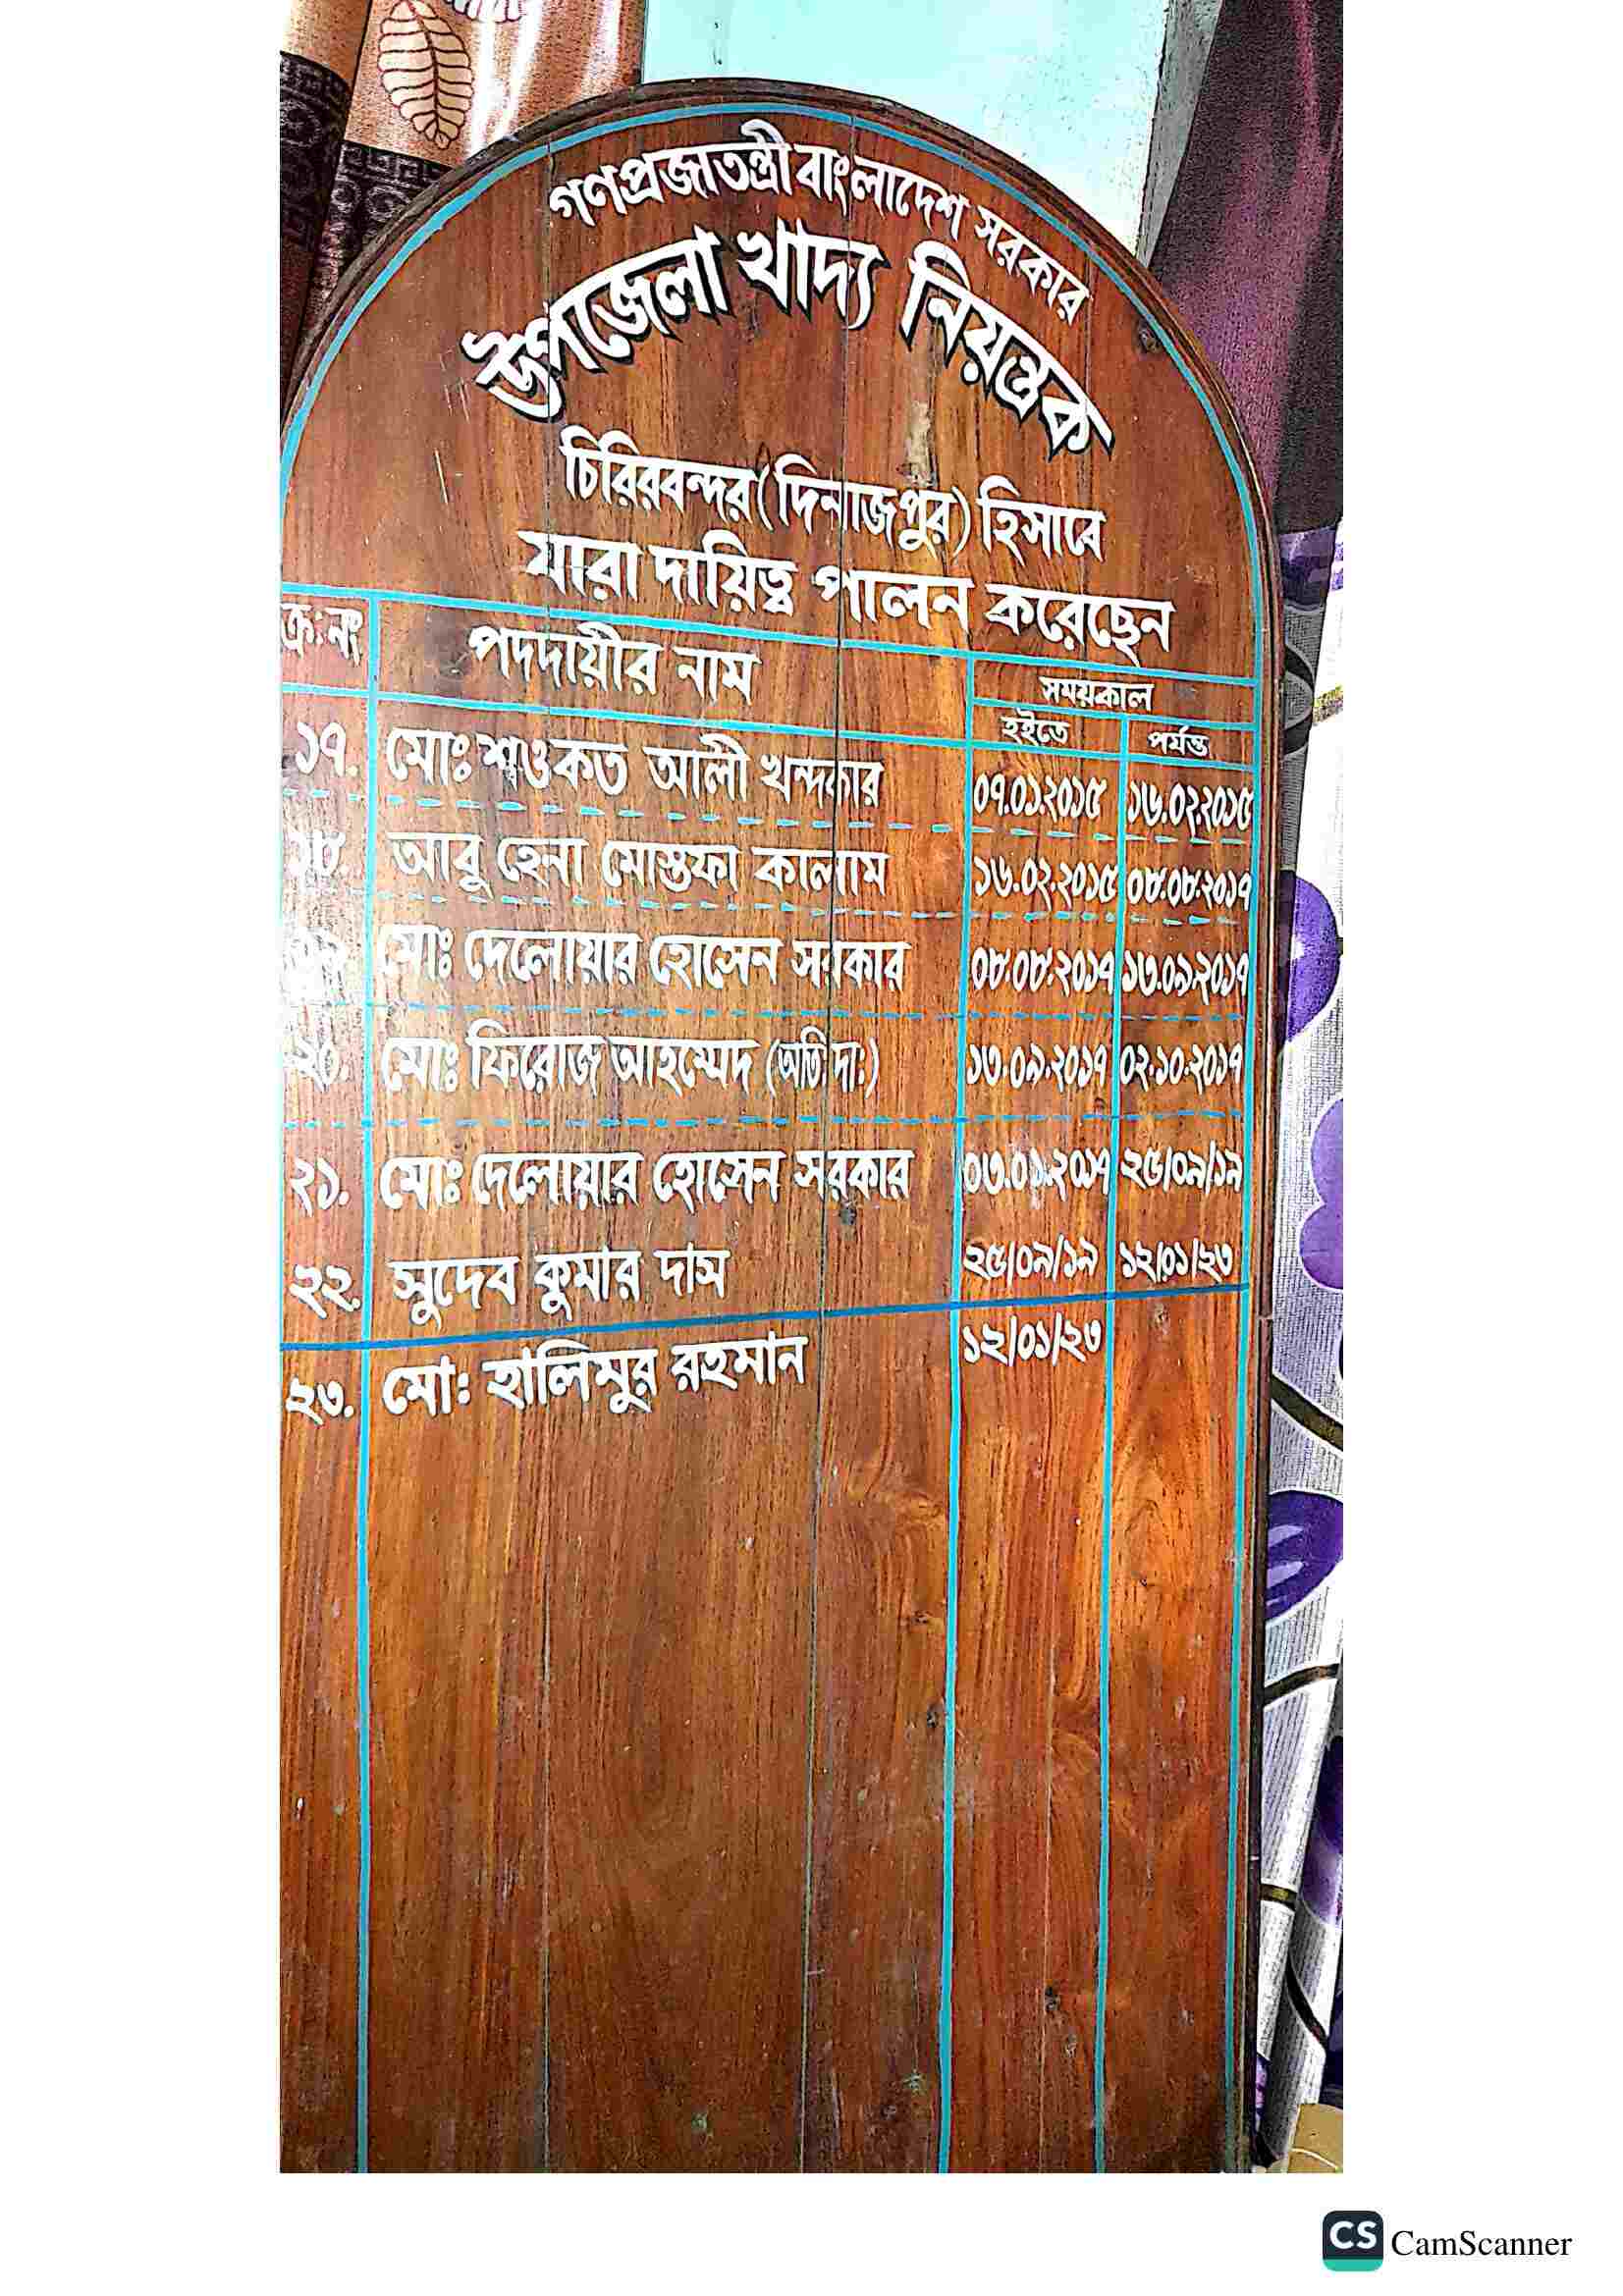 গণপ্রজাতন্ত্রী বাংলাদেশ সরকার
উপজেলা খাদ্য নিয়ন্ত্রক
চিরিরবন্দর (দিনাজপুর) হিসাবে
যারা দায়িত্ব পালন করেছেন
ক্র:নং পদদায়ীর নাম সময়কাল
হইতে পর্যন্ত
১৭. মোঃ শওকত আলী খন্দকার ০৭.০১.২০১৫ ১৬.০২.২০১৫
১৮. আবু হেনা মোস্তফা কালাম ১৬.০২.২০১৫ ০৮.০৮.২০১৭
মোঃ দেলোয়ার হোসেন সরকার ০৮.০৮.২০১৭ ১৩.০৯.২০১৭
২০. মোঃ ফিরোজ আহম্মেদ (অতি:দা:) ১৩.০৯.২০১৭ ০২.১০.২০১৭
২১. মোঃ দেলোয়ার হোসেন সরকার ২৫/০৯/১৯
২২. সুদেব কুমার দাস ২৫/০৯/১৯ ১২/০১/২৩
২৩. মো: হালিমুর রহমান ১২/০১/২৩
CS CamScanner